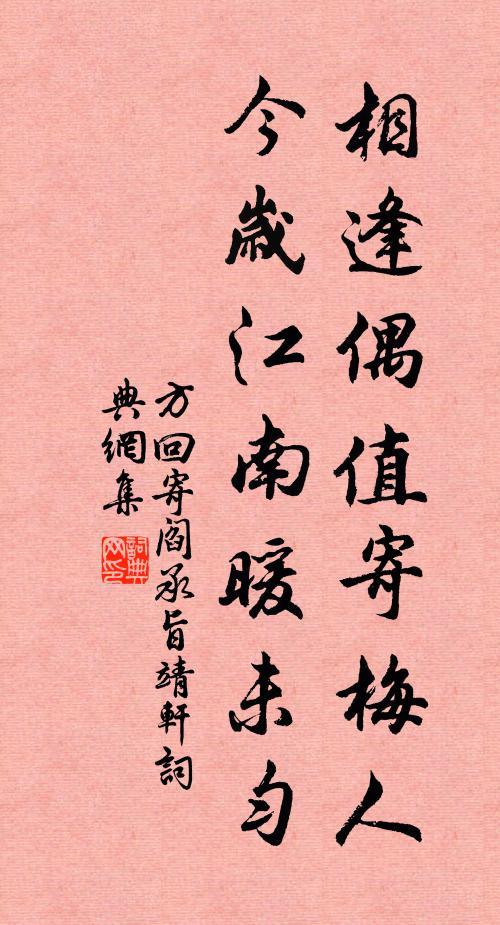 相逢偶值寄梅人
今歲江南暖未勻
方回寄閻承旨靖軒詞
典網集
詞典
网印